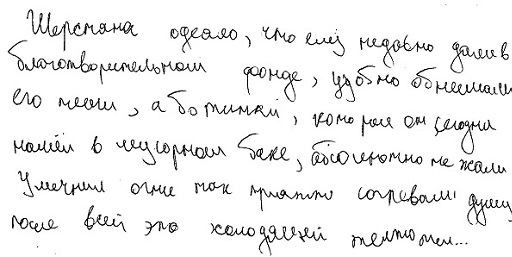 Шерстяна одеяло, что ему недавно дали в
благотворительном фонде, удобно обнимало
его плечи, а ботинки, которые он сегодня
нашёл в мусорном баке, абсолютно не жали
Уличные огни так приятно согревали душу
после всей это холодящей темноты...